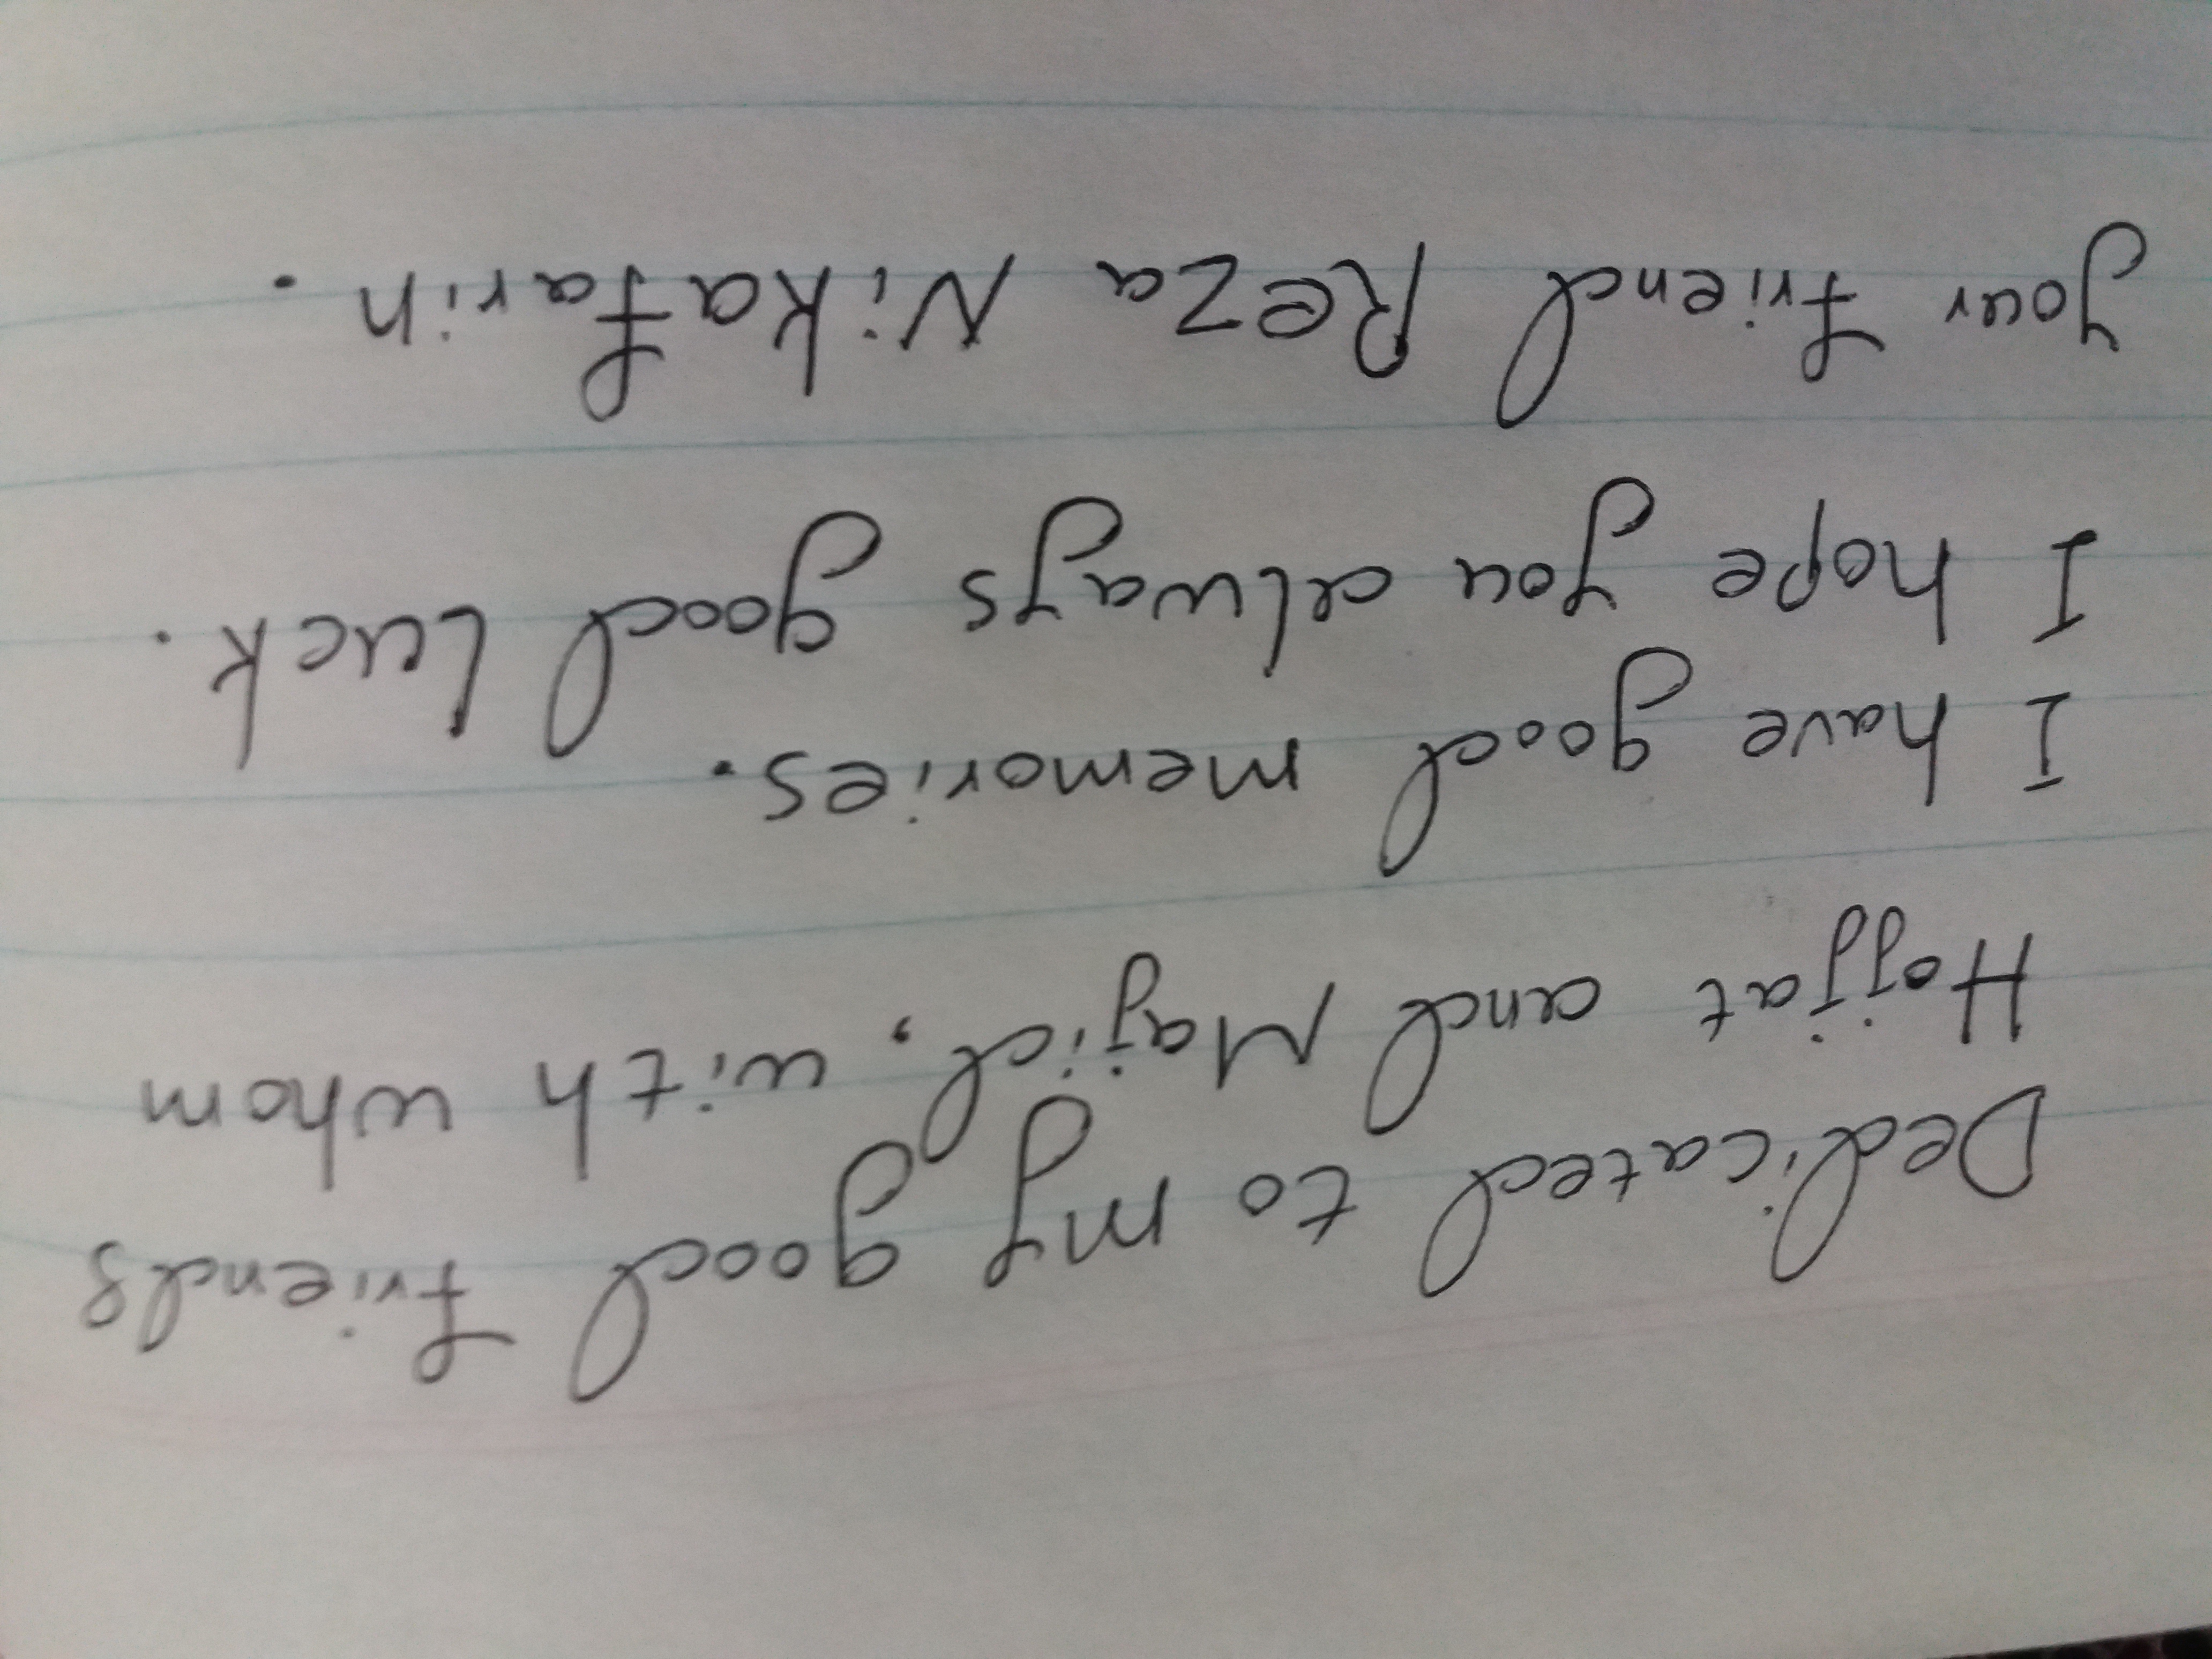 Dedicated to my good friends
Hojjat and Majid, with whom
I have good memories.
I hope you always good luck.
your friend Reza Nikafarin.